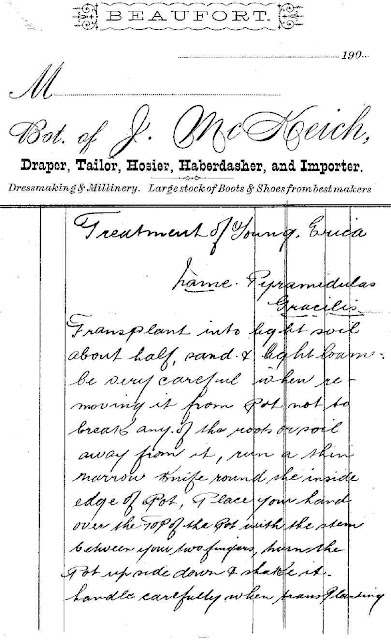 BEAUFORT.
190...
M
Bot. of J. McKeich,
Draper, Tailor, Hosier, Haberdasher, and Importer.
Dressmaking & Millinery. Large stock of Boots & Shoes from best makers
Treatment of Young. Erica
name. Pyramidulas
Gracilis.
Transplant into light soil
about half, sand & light loam.
be very careful when re-
moving it from Pot not to
break any of the roots or soil
away from it, run a thin
narrow Knife round the inside
edge of Pot, Place your hand
over the Top of the Pot with the stem
between your two fingers, turn the
Pot up side down & shake it.
handle carefully when transplanting